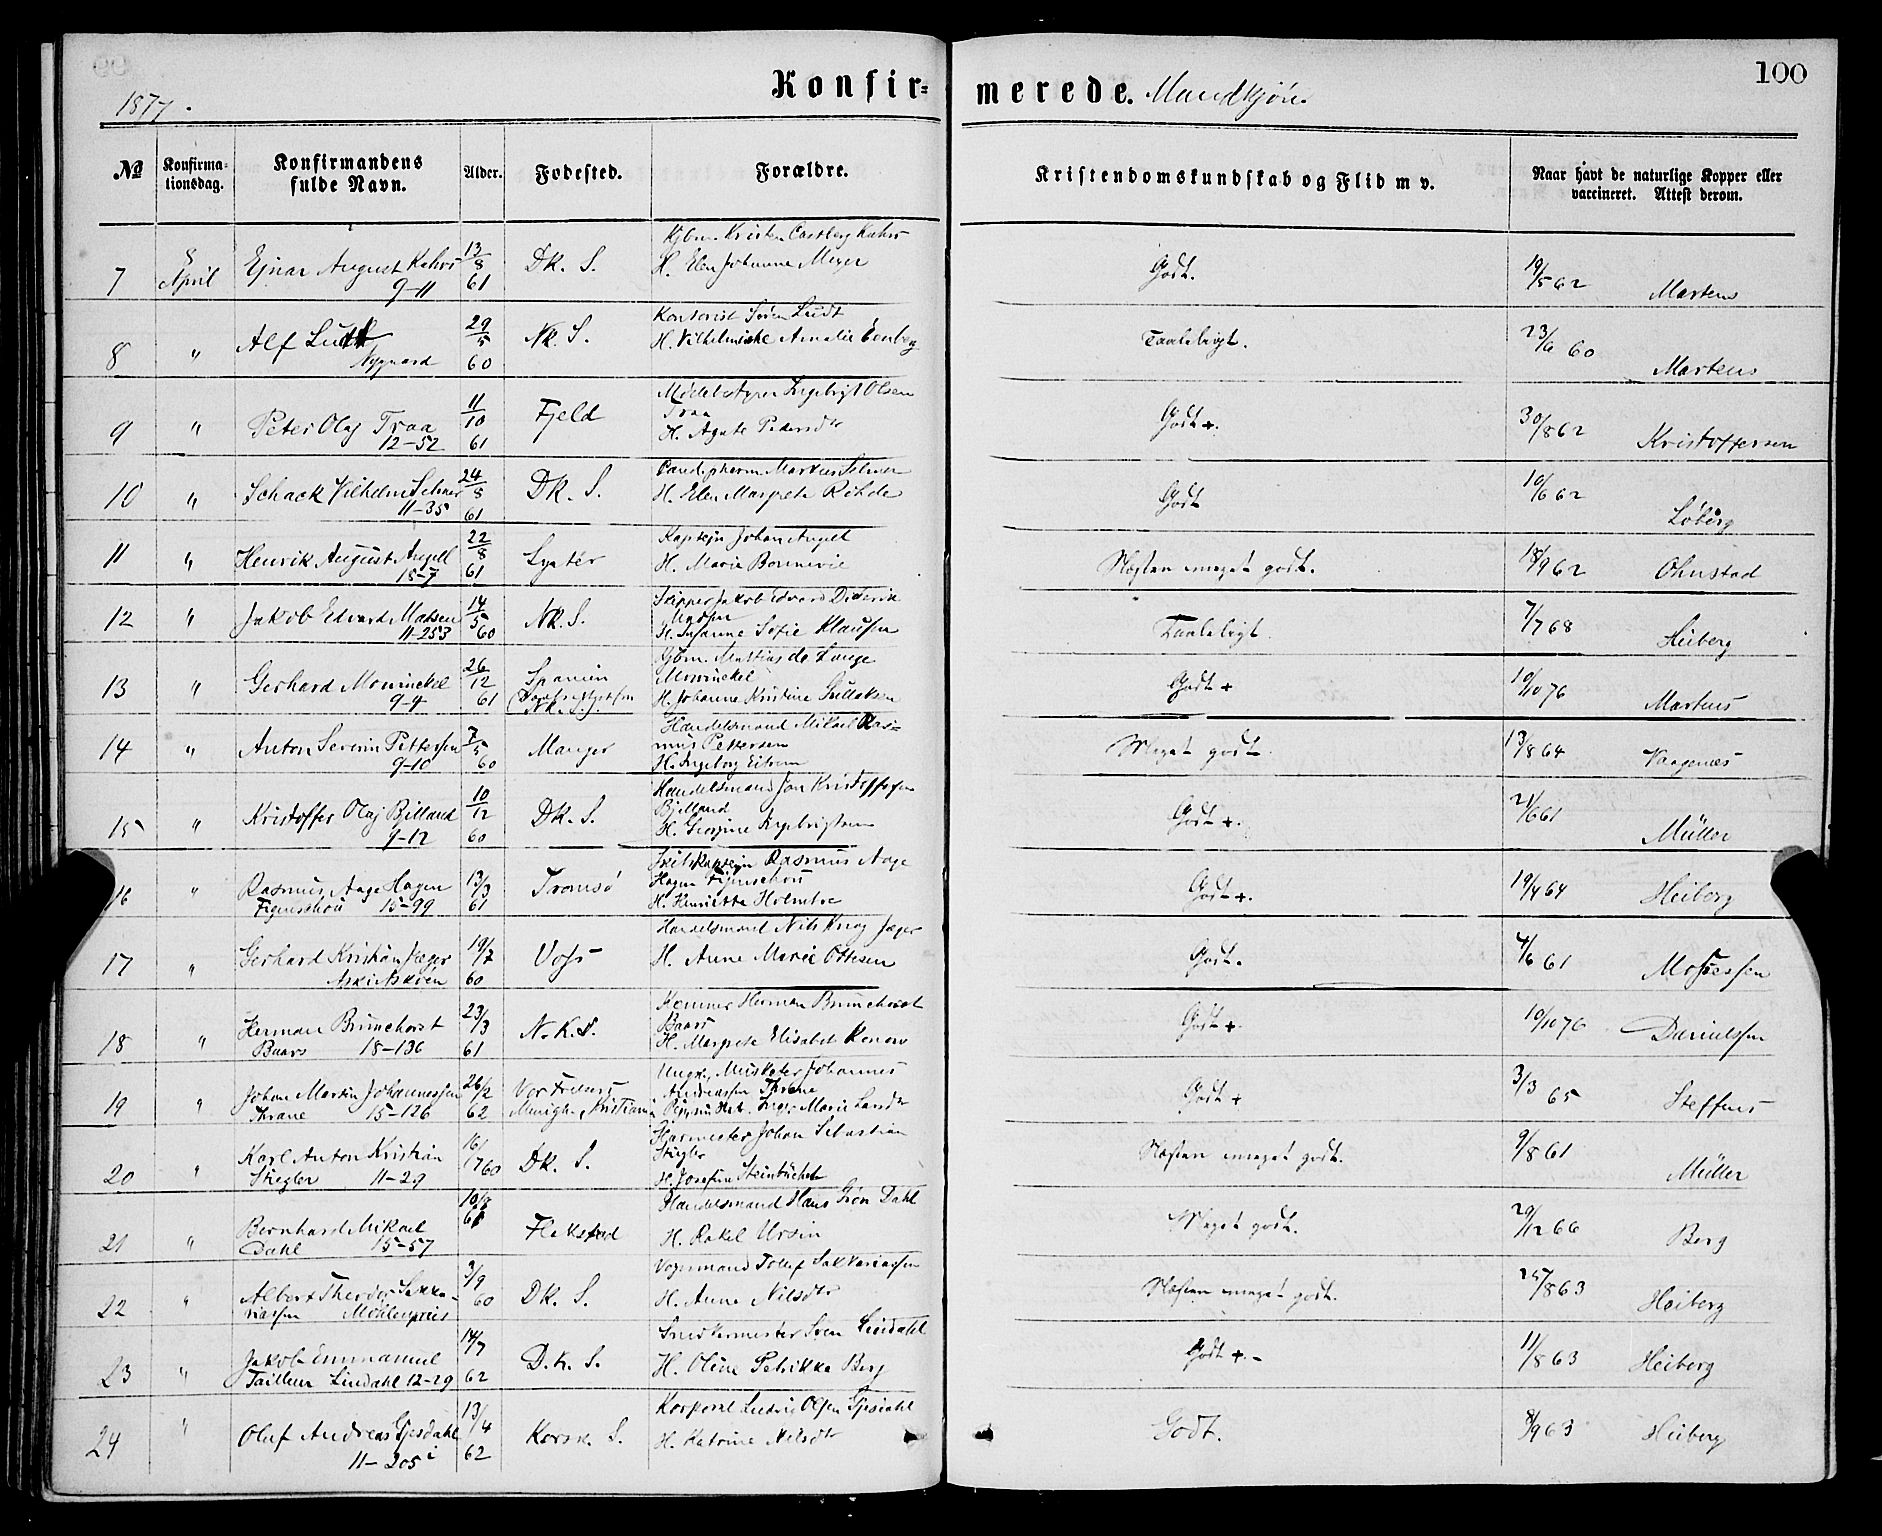 1877.
Konfir- merede. Mandkjön.
100
№ Konfirmationsdag. Konfirmandens fulde Navn. Alder. Fødested. Forældre. Kristendomskundskab og Flid m v. Naar havt de naturlige Kopper eller vaccineret. Attest derom.
7 8 April Ejnar August Kahrs 9-11 13/8 61 Dk. S. Kjbm. Kristen Castberg Kahrs H. Elen Johanne Meyer Godt. 19/5 62 Martens
8 " Alf Nygaard 29/5 60 Nk. S. Kontorist Sören H. Amalie Taaleligt. 23/6 60 Martens
9 " Peter Olaj Traa 12-52 11/10 61 Fjeld Ingebrigt Olsen Traa H. Agate Pedersdtr Godt +. 30/8 62 Kristoffersen
10 " Schack Vilhelm 11-35 24/8 61 Dk. S. Cand. pharm Markus H. Elen Margrete Rohde Godt 10/6 62 Löberg
11 " Henrik August Angell 15-7 22/8 61 Lyster Kaptejn Johan Angell H. Marie Bonnevie Næsten meget godt. 18/9 62 Ohnstad
12 " Jakob Edvard Madsen 11-253 14/5 60 Nk. S. Skipper Jakob Edvard Diderik Madsen H. Susanne Sofie Klausen Taaleligt. 7/7 68 Heiberg
13 " Gerhard Mowinckel 9-4 26/12 61 Spanien Nk. S. Kjbm. Mattias de Lange Mowinckel H. Johanne Kristine Gullaksen Godt + 10/10 76 Martens
14 " Anton Severin Pettersen 9-10 7/5 60 Manger Handelsmand Mikael Rasmus Pettersen H. Ingeborg Eitrem Meget godt. 13/8 64 Vaagenæs
15 " Kristoffer Olaj Bjelland 9-12 10/12 60 Dk. S. Handelsmand Jon Kristoffersen Bjelland H. Georgine Ingebrigtsen Godt +. 21/6 61 Müller
16 " Rasmus Aage Hagen Figenschou 15-99 13/3 61 Tromsö Rasmus Aage Hagen Figenschou H. Henriette Holmboe Godt +. 19/4 64 Heiberg
17 " Gerhard Kristian Jæger Ask i Askøen 19/7 60 Voss Handelsmand Nils Krog Jæger H. Anne Marie Ottesen Godt. 4/6 61 Mossessen
18 " Herman Brunchorst Baars 18-136 23/3 61 N.K.S. Kæmner Herman Brunchorst Baars H. Margrete Elisabet Konow Godt +. 10/10 76 Danielssen
19 " Johan Martin Johannessen Thrane 15-126 26/2 62 Vor Frelsers Menighed Kristiania Ungk. Musketer Johannes Andreassen Thrane Marie Larsdtr Godt + 3/3 65 Steffens
20 " Karl Anton Kristian Stiegler 11-29 16/17 60 Dk. S. Johan Sebastian Stiegler H. Josefine Steinbüchel Næsten meget godt. 9/8 61 Müller
21 " Bernhard Mikael Dahl 15-57 10/8 61 Flekstad Handelsmand Hans Grøn Dahl H. Rakel Ursin Meget godt. 29/12 66 Berg
22 " Albert Theodor Sakkariassen Möhlenpris 3/9 60 Dk. S. Vognmand Tollef Sakkariassen H. Anne Nilsdtr Næsten meget godt. 25/8 63 Heiberg
23 " Jakob Emmanuel Tailleur Lindahl 12-29 14/7 62 D.k. S. Snedkermester Sven Lindahl H. Oline Petrikke Berg Godt +. - 11/8 63 Heiberg
24 " Oluf Andreas Gjesdahl 11-205 i 13/4 62 Korsk. S. Korporal Ludvig Olsen Gjesdahl H. Katrine Nilsdtr Godt. 8/9 63 Heiberg